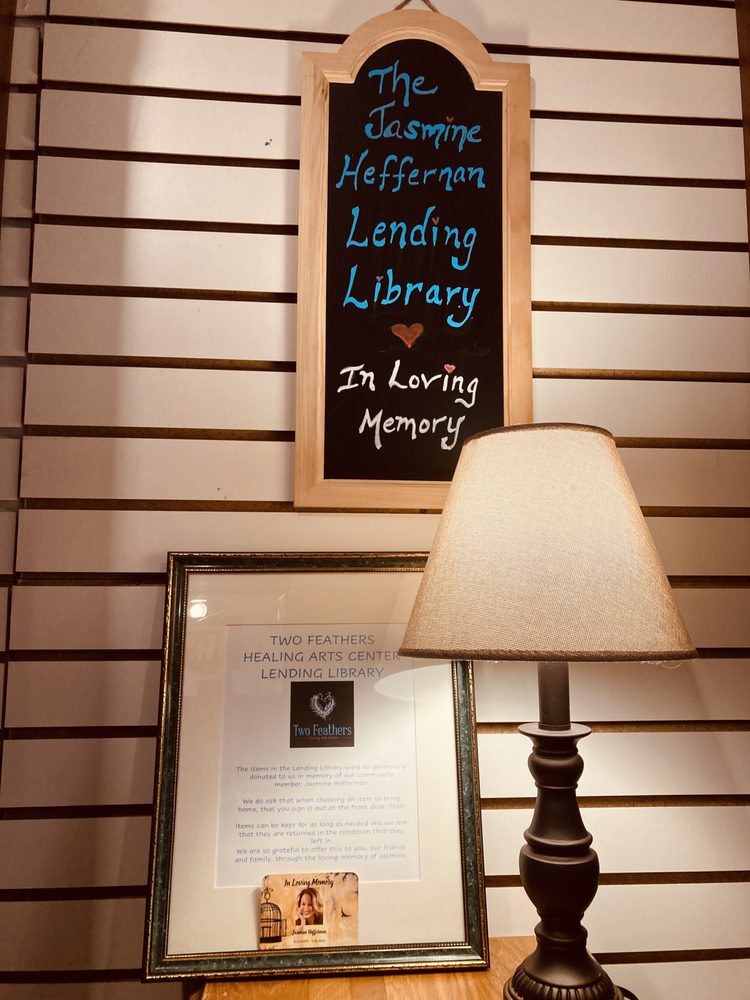 The
Jasmine
Heffernan
Lending
Library
In Loving
Memory
TWO FEATHERS
HEALING ARTS CENTER
LENDING LIBRARY
Two Feathers
Healing Arts Center
The items in the Lending Library were so generously
donated to us in memory of our community
member, Jasmine Hefferman.
We do ask that when choosing an item to bring
home, that you sign it out at the front desk, first.
Items can be kept for as long as needed and we ask
that they are returned in the condition that they
left in.
We are so grateful to offer this to you, our friends
and family, through the loving memory of Jasmine.
In Loving Memory
Jasmine Heffernan